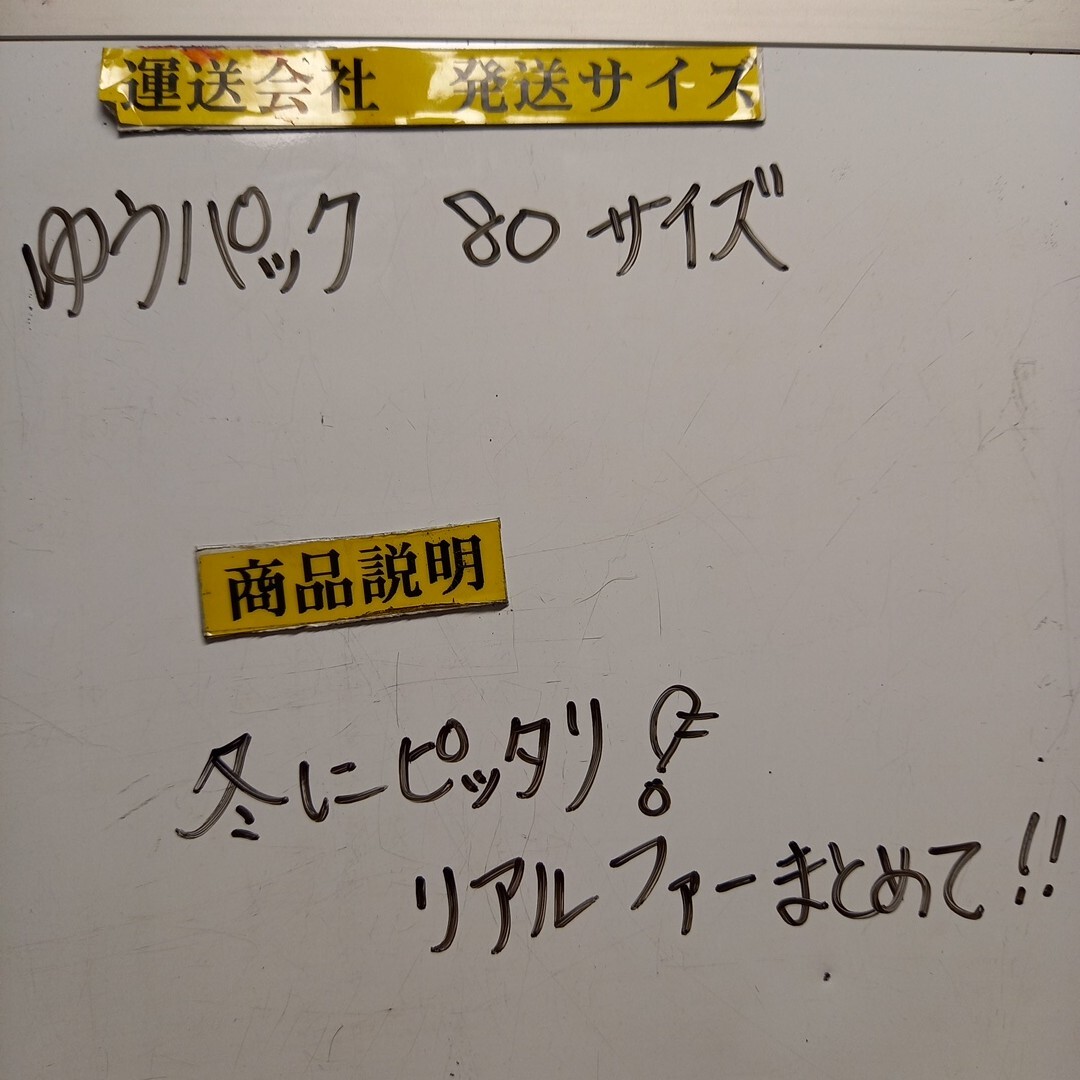 運送会社 発送サイズ
ゆうパック 80サイズ
商品説明
冬にピッタリ
リアルファーまとめて!!